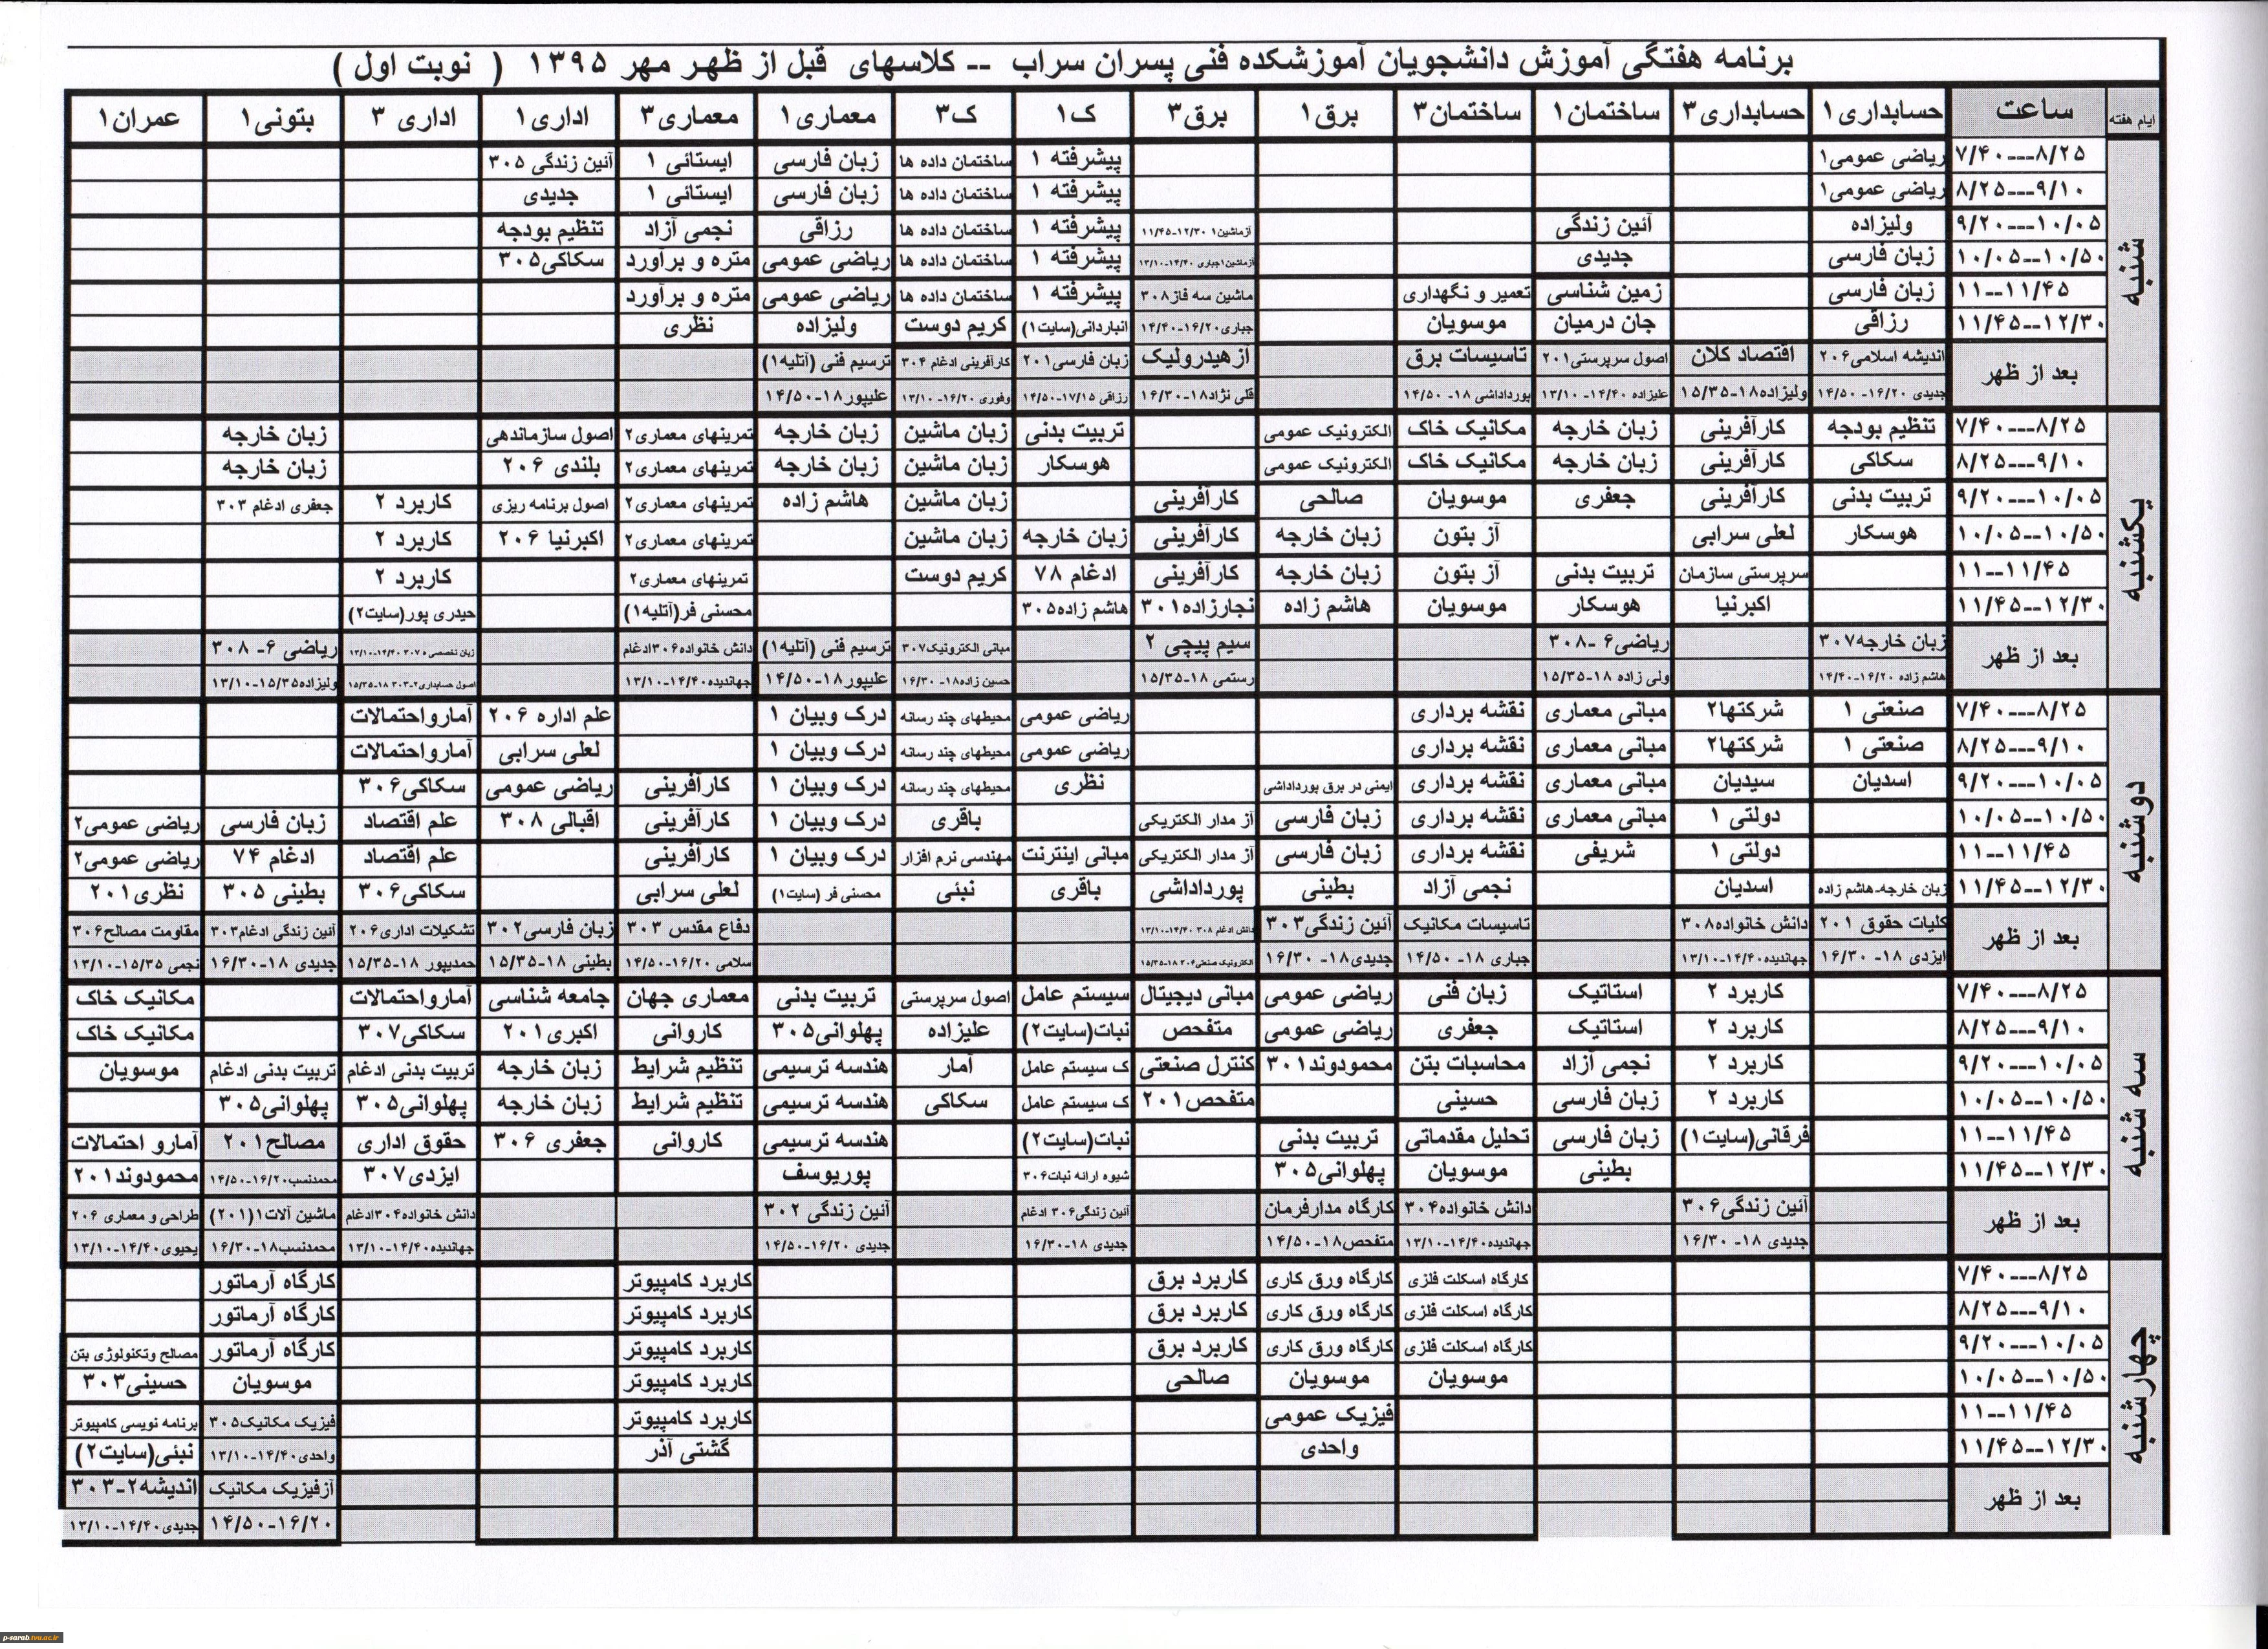 برنامه هفتگی آموزش دانشجویان آموزشکده فنی پسران سراب -- کلاسهای قبل از ظهر مهر ۱۳۹۵ ( نوبت اول )
ایام هفته ساعت حسابداری۱ حسابداری۳ ساختمان۱ ساختمان۳ برق۱ برق۳ ک۱ ک۳ معماری۱ معماری۳ اداری۱ اداری ۳ بتونی۱ عمران۱
شنبه
۷/۴۰---۸/۲۵ ریاضی عمومی۱ پیشرفته ۱ ساختمان داده ها زبان فارسی ایستائی ۱ آئین زندگی ۳۰۵
۸/۲۵---۹/۱۰ ریاضی عمومی۱ پیشرفته ۱ ساختمان داده ها زبان فارسی ایستائی ۱ جدیدی
۹/۲۰---۱۰/۰۵ ولیزاده آئین زندگی ازماشین۱ ۱۲/۳۰-۱۱/۴۵ پیشرفته ۱ ساختمان داده ها رزاقی نجمی آزاد تنظیم بودجه
۱۰/۰۵--۱۰/۵۰ زبان فارسی جدیدی ازماشین۱جباری ۱۴/۴۰-۱۳/۱۰ پیشرفته ۱ ساختمان داده ها ریاضی عمومی متره و برآورد سکاکی۳۰۵
۱۱--۱۱/۴۵ زبان فارسی زمین شناسی تعمیر و نگهداری ماشین سه فاز۳۰۸ پیشرفته ۱ ساختمان داده ها ریاضی عمومی متره و برآورد
۱۱/۴۵--۱۲/۳۰ رزاقی جان درمیان موسویان جباری۱۶/۲۰-۱۴/۴۰ انباردانی(سایت۱) کریم دوست ولیزاده نظری
بعد از ظهر اندیشه اسلامی۲۰۶ اقتصاد کلان اصول سرپرستی۲۰۱ تاسیسات برق از هیدرولیک زبان فارسی۲۰۱ کارآفرینی ادغام ۳۰۴ ترسیم فنی (آتلیه۱)
جدیدی ۱۶/۲۰- ۱۴/۵۰ ولیزاده۱۸-۱۵/۳۵ علیزاده ۱۴/۴۰- ۱۳/۱۰ پورداداشی ۱۸- ۱۴/۵۰ قلی نژاد۱۸-۱۶/۳۰ رزاقی ۱۷/۱۵-۱۴/۵۰ وفوری ۱۶/۲۰- ۱۳/۱۰ علیپور۱۸-۱۴/۵۰
یکشنبه
۷/۴۰---۸/۲۵ تنظیم بودجه کارآفرینی زبان خارجه مکانیک خاک الکترونیک عمومی تربیت بدنی زبان ماشین زبان خارجه تمرینهای معماری۲ اصول سازماندهی زبان خارجه
۸/۲۵---۹/۱۰ سکاکی کارآفرینی زبان خارجه مکانیک خاک الکترونیک عمومی هوسکار زبان ماشین زبان خارجه تمرینهای معماری۲ بلندی ۲۰۶ زبان خارجه
۹/۲۰---۱۰/۰۵ تربیت بدنی کارآفرینی جعفری موسویان صالحی کارآفرینی زبان ماشین هاشم زاده تمرینهای معماری۲ اصول برنامه ریزی کاربرد ۲ جعفری ادغام ۳۰۳
۱۰/۰۵--۱۰/۵۰ هوسکار لعلی سرابی آز بتون زبان خارجه کارآفرینی زبان خارجه زبان ماشین تمرینهای معماری۲ اکبرنیا ۲۰۶ کاربرد ۲
۱۱--۱۱/۴۵ سرپرستی سازمان تربیت بدنی آز بتون زبان خارجه کارآفرینی ادغام ۷۸ کریم دوست تمرینهای معماری۲ کاربرد ۲
۱۱/۴۵--۱۲/۳۰ اکبرنیا هوسکار موسویان هاشم زاده نجارزاده۳۰۱ هاشم زاده۳۰۵ محسنی فر(آتلیه۱) حیدری پور(سایت۲)
بعد از ظهر زبان خارجه۳۰۷ ریاضی۶ -۳۰۸ سیم پیچی ۲ مبانی الکترونیک۳۰۷ ترسیم فنی (آتلیه۱) دانش خانواده۳۰۶ادغام زبان تخصصی ۳۰۷ ۱۴/۴۰-۱۳/۱۰ ریاضی ۶- ۳۰۸
هاشم زاده ۱۶/۲۰-۱۴/۴۰ ولی زاده ۱۸-۱۵/۳۵ رستمی ۱۸-۱۵/۳۵ حسین زاده۱۸- ۱۶/۳۰ علیپور۱۸-۱۴/۵۰ جهاندیده۱۴/۴۰-۱۳/۱۰ اصول حسابداری۲-۳۰۳ ۱۸-۱۵/۳۵ ولیزاده۱۵/۳۵-۱۳/۱۰
دوشنبه
۷/۴۰---۸/۲۵ صنعتی ۱ شرکتها۲ مبانی معماری نقشه برداری ریاضی عمومی محیطهای چند رسانه درک وبیان ۱ علم اداره ۲۰۶ آمارواحتمالات
۸/۲۵---۹/۱۰ صنعتی ۱ شرکتها۲ مبانی معماری نقشه برداری ریاضی عمومی محیطهای چند رسانه درک وبیان ۱ لعلی سرابی آمارواحتمالات
۹/۲۰---۱۰/۰۵ اسدیان سیدیان مبانی معماری نقشه برداری ایمنی در برق پورداداشی نظری محیطهای چند رسانه درک وبیان ۱ کارآفرینی ریاضی عمومی سکاکی۳۰۶
۱۰/۰۵--۱۰/۵۰ دولتی ۱ مبانی معماری نقشه برداری زبان فارسی آز مدار الکتریکی باقری درک وبیان ۱ کارآفرینی اقبالی ۳۰۸ علم اقتصاد زبان فارسی ریاضی عمومی۲
۱۱--۱۱/۴۵ دولتی ۱ شریفی نقشه برداری زبان فارسی آز مدار الکتریکی مبانی اینترنت مهندسی نرم افزار درک وبیان ۱ کارآفرینی علم اقتصاد ادغام ۷۴ ریاضی عمومی۲
۱۱/۴۵--۱۲/۳۰ زبان خارجه-هاشم زاده اسدیان نجمی آزاد بطینی پورداداشی باقری نبئی محسنی فر (سایت۱) لعلی سرابی سکاکی۳۰۶ بطینی ۳۰۵ نظری۲۰۱
بعد از ظهر کلیات حقوق ۲۰۱ دانش خانواده۳۰۸ تاسیسات مکانیک آئین زندگی۳۰۳ دانش ادغام ۳۰۸ ۱۴/۴۰-۱۳/۱۰ دفاع مقدس ۳۰۳ زبان فارسی۳۰۲ تشکیلات اداری۲۰۶ آئین زندگی ادغام۳۰۳ مقاومت مصالح۳۰۶
ایزدی ۱۸- ۱۶/۳۰ جهاندیده۱۴/۴۰-۱۳/۱۰ جباری ۱۸- ۱۴/۵۰ جدیدی۱۸- ۱۶/۳۰ الکترونیک صنعتی۳۰۶ ۱۸-۱۵/۳۵ سلامی ۱۶/۲۰-۱۴/۵۰ بطینی ۱۸-۱۵/۳۵ حمدیپور ۱۸-۱۵/۳۵ جدیدی ۱۸-۱۶/۳۰ نجمی ۱۵/۳۵-۱۳/۱۰
سه شنبه
۷/۴۰---۸/۲۵ کاربرد ۲ استاتیک زبان فنی ریاضی عمومی مبانی دیجیتال سیستم عامل اصول سرپرستی تربیت بدنی معماری جهان جامعه شناسی آمارواحتمالات مکانیک خاک
۸/۲۵---۹/۱۰ کاربرد ۲ استاتیک جعفری ریاضی عمومی متفحص نبات(سایت۲) علیزاده پهلوانی۳۰۵ کاروانی اکبری۲۰۱ سکاکی۳۰۷ مکانیک خاک
۹/۲۰---۱۰/۰۵ کاربرد ۲ نجمی آزاد محاسبات بتن محمودوند۳۰۱ کنترل صنعتی ک سیستم عامل آمار هندسه ترسیمی تنظیم شرایط زبان خارجه تربیت بدنی ادغام تربیت بدنی ادغام موسویان
۱۰/۰۵--۱۰/۵۰ کاربرد ۲ زبان فارسی حسینی متفحص۲۰۱ ک سیستم عامل سکاکی هندسه ترسیمی تنظیم شرایط زبان خارجه پهلوانی۳۰۵ پهلوانی۳۰۵
۱۱--۱۱/۴۵ فرقانی(سایت۱) زبان فارسی تحلیل مقدماتی تربیت بدنی نبات(سایت۲) هندسه ترسیمی کاروانی جعفری ۳۰۶ حقوق اداری مصالح۲۰۱ آمارو احتمالات
۱۱/۴۵--۱۲/۳۰ بطینی موسویان پهلوانی۳۰۵ شیوه ارائه نبات۳۰۶ پوریوسف ایزدی۳۰۷ محمدنسب۱۶/۲۰-۱۴/۵۰ محمودوند۲۰۱
بعد از ظهر آئین زندگی۳۰۶ دانش خانواده۳۰۴ کارگاه مدارفرمان آئین زندگی۳۰۶ ادغام آئین زندگی ۳۰۲ دانش خانواده۳۰۴ادغام ماشین آلات۱(۲۰۱) طراحی و معماری ۲۰۶
جدیدی ۱۸- ۱۶/۳۰ جهاندیده۱۴/۴۰-۱۳/۱۰ متفحص۱۸-۱۴/۵۰ جدیدی ۱۸-۱۶/۳۰ جدیدی ۱۶/۲۰-۱۴/۵۰ جهاندیده۱۴/۴۰-۱۳/۱۰ محمدنسب۱۸-۱۶/۳۰ یحیوی۱۴/۴۰-۱۳/۱۰
چهارشنبه
۷/۴۰---۸/۲۵ کارگاه اسکلت فلزی کارگاه ورق کاری کاربرد برق کاربرد کامپیوتر کارگاه آرماتور
۸/۲۵---۹/۱۰ کارگاه اسکلت فلزی کارگاه ورق کاری کاربرد برق کاربرد کامپیوتر کارگاه آرماتور
۹/۲۰---۱۰/۰۵ کارگاه اسکلت فلزی کارگاه ورق کاری کاربرد برق کاربرد کامپیوتر کارگاه آرماتور مصالح وتکنولوژی بتن
۱۰/۰۵--۱۰/۵۰ موسویان موسویان صالحی کاربرد کامپیوتر موسویان حسینی۳۰۳
۱۱--۱۱/۴۵ فیزیک عمومی کاربرد کامپیوتر فیزیک مکانیک۳۰۵ برنامه نویسی کامپیوتر
۱۱/۴۵--۱۲/۳۰ واحدی گشتی آذر واحدی۱۴/۴۰-۱۳/۱۰ نبئی(سایت۲)
بعد از ظهر آزفیزیک مکانیک اندیشه۲-۳۰۳
۱۶/۲۰-۱۴/۵۰ جدیدی۱۴/۴۰-۱۳/۱۰
p-sarab.tvu.ac.ir